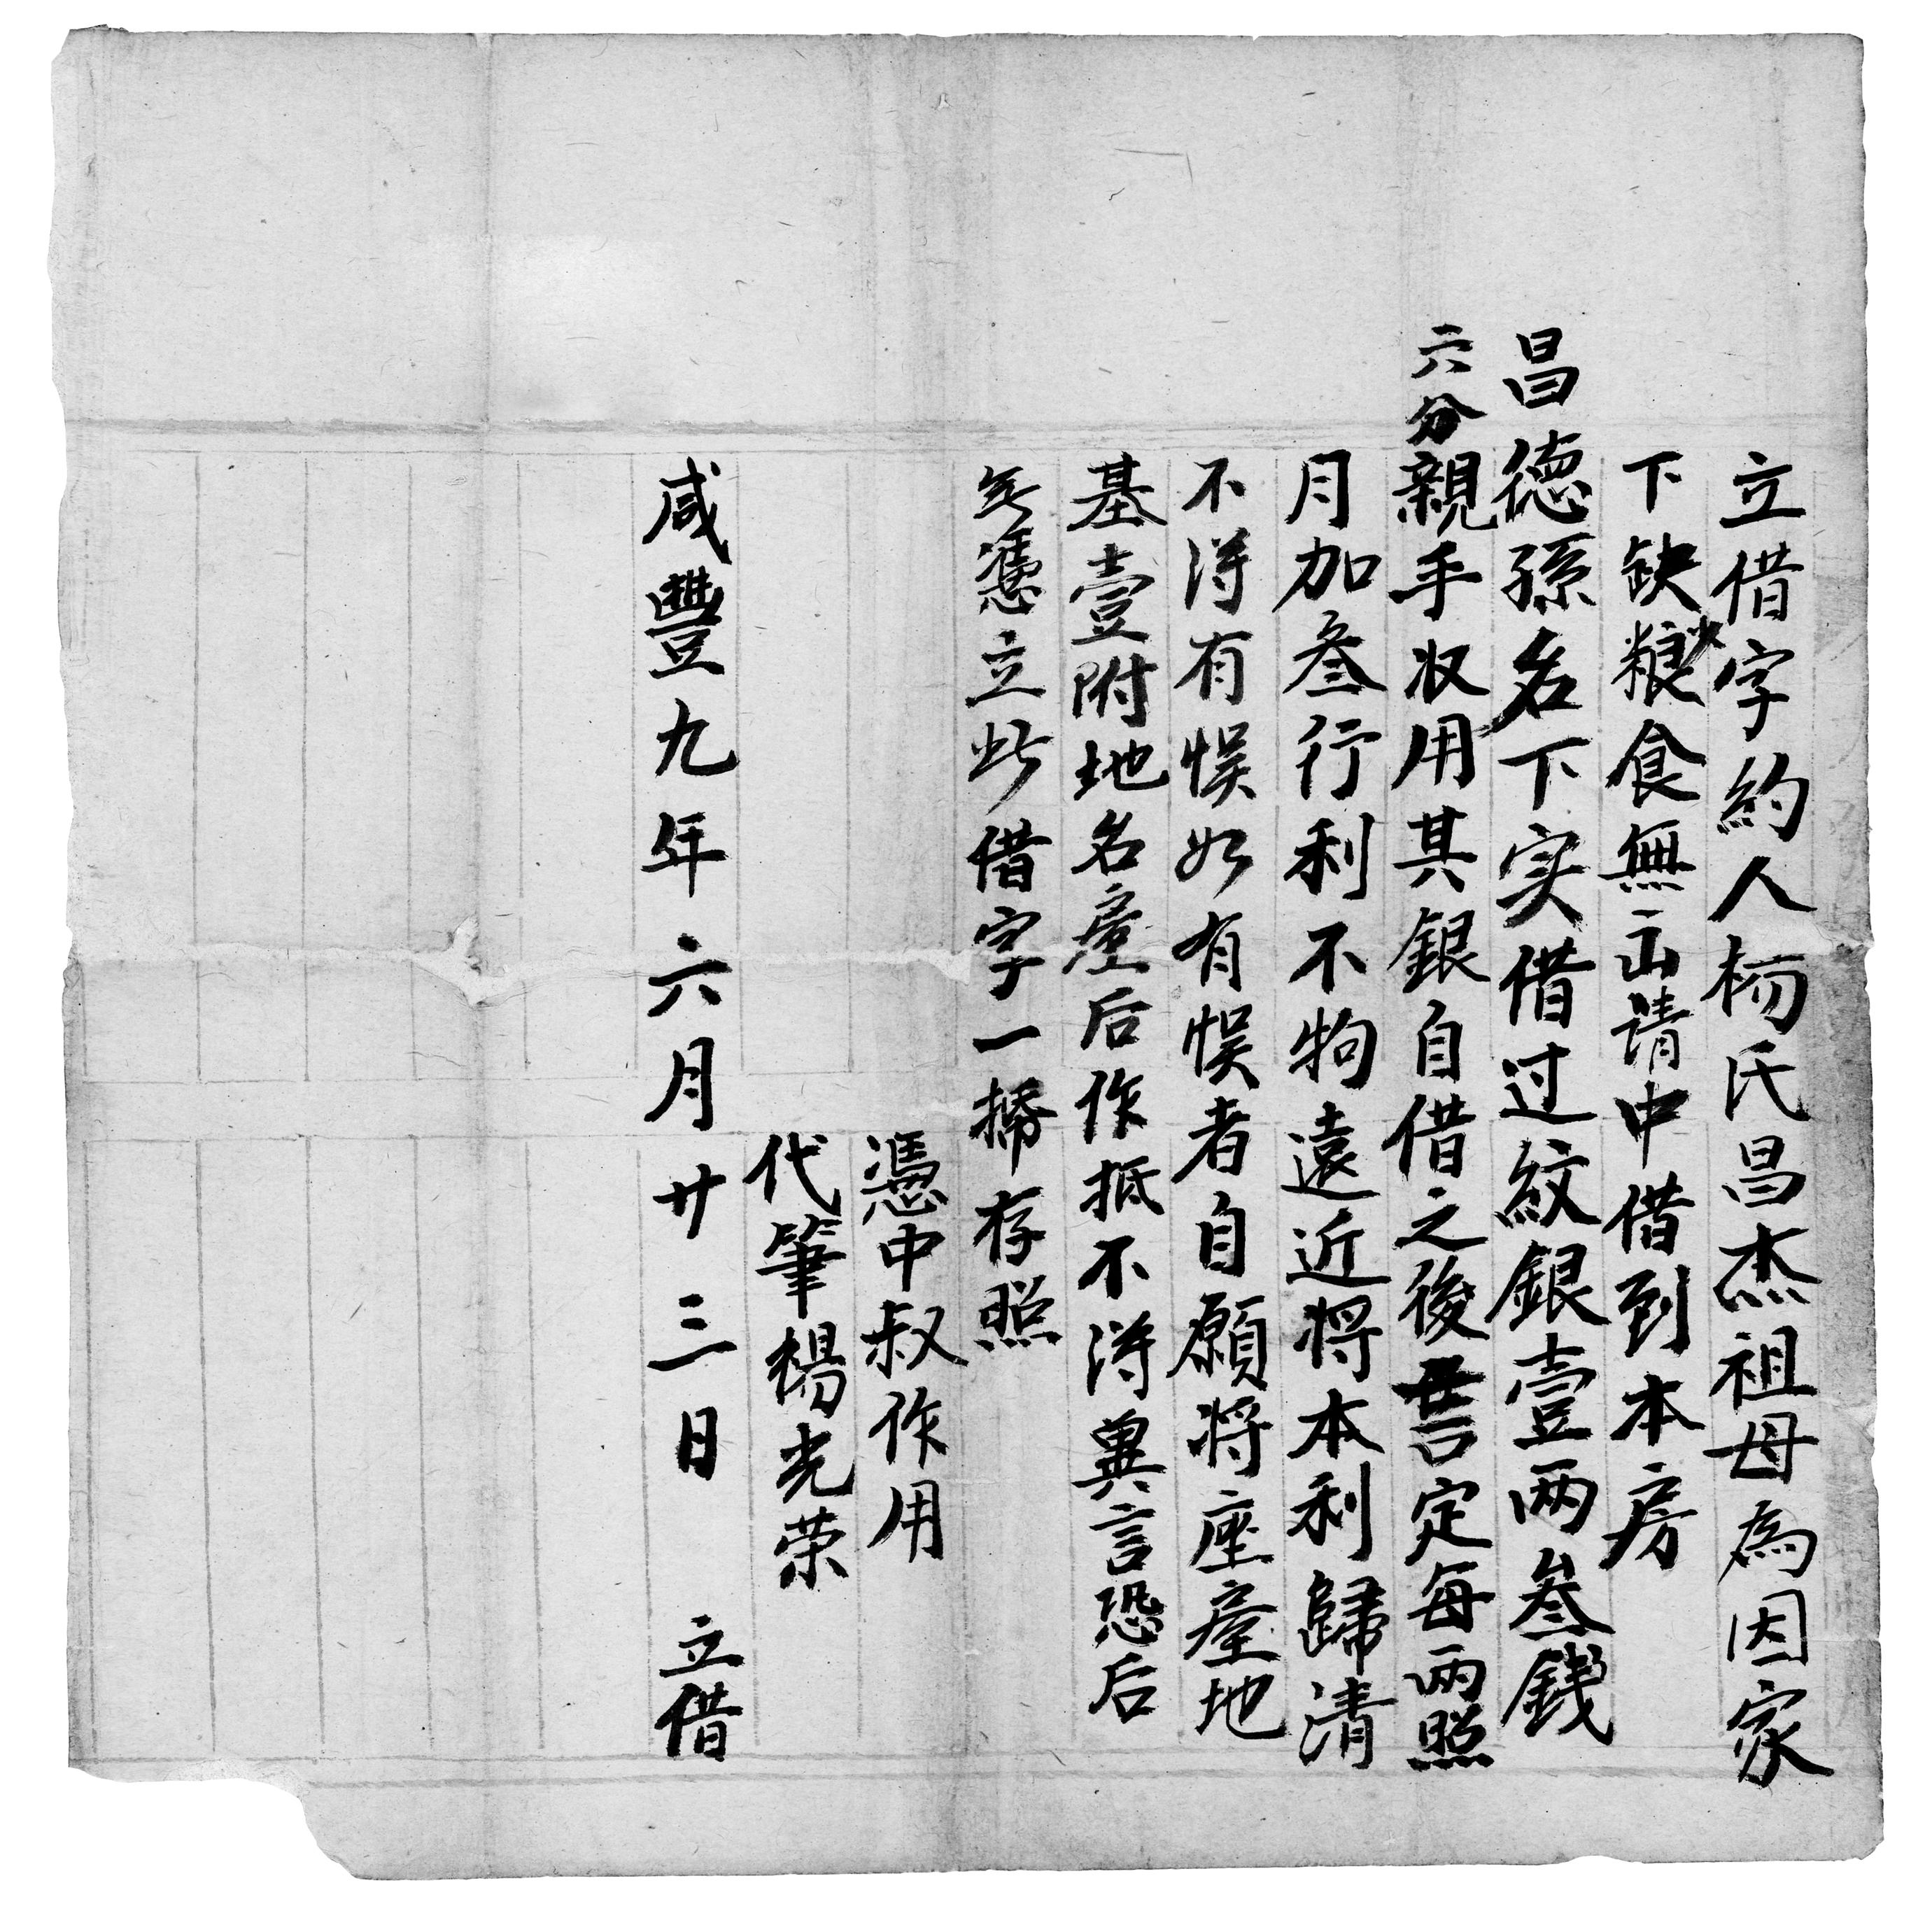 立借字約人杨氏昌杰祖母為因家
下缺少粮食無口請中借到本房
昌德孫名下实借过紋銀壹两叁錢
六分親手收用其銀自借之後言定每兩照
月加叁行利不拘遠近将本利歸清
不淂有悮如有悮者自願将座屋地
基壹附地名屋后作抵不淂異言恐后
无憑立此借字一㧣存照
憑中叔作用
代筆楊光荣
咸豐九年六月廿三日 立借